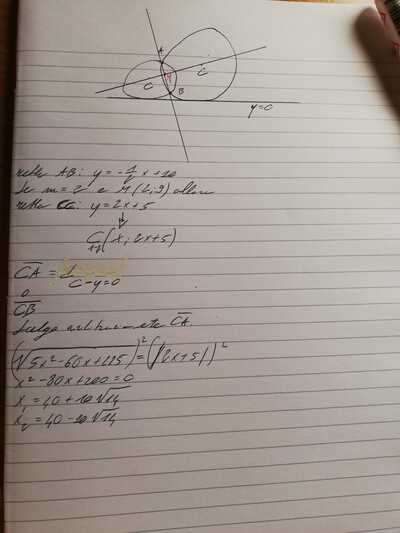 A
C
C
B
y=0
retta AB: y = -1/2 x + 10
Se m = 2 e M(2,9) allora
retta CC: y = 2x+5
C (x; 2x+5)
CA = d C-y=0
o
CB
Scelgo arbitrariamente CA.
(√5x²-60x+225)² = (|2x+5|)²
x²-80x+200=0
x₁ = 40+10√14
x₂ = 40-10√14